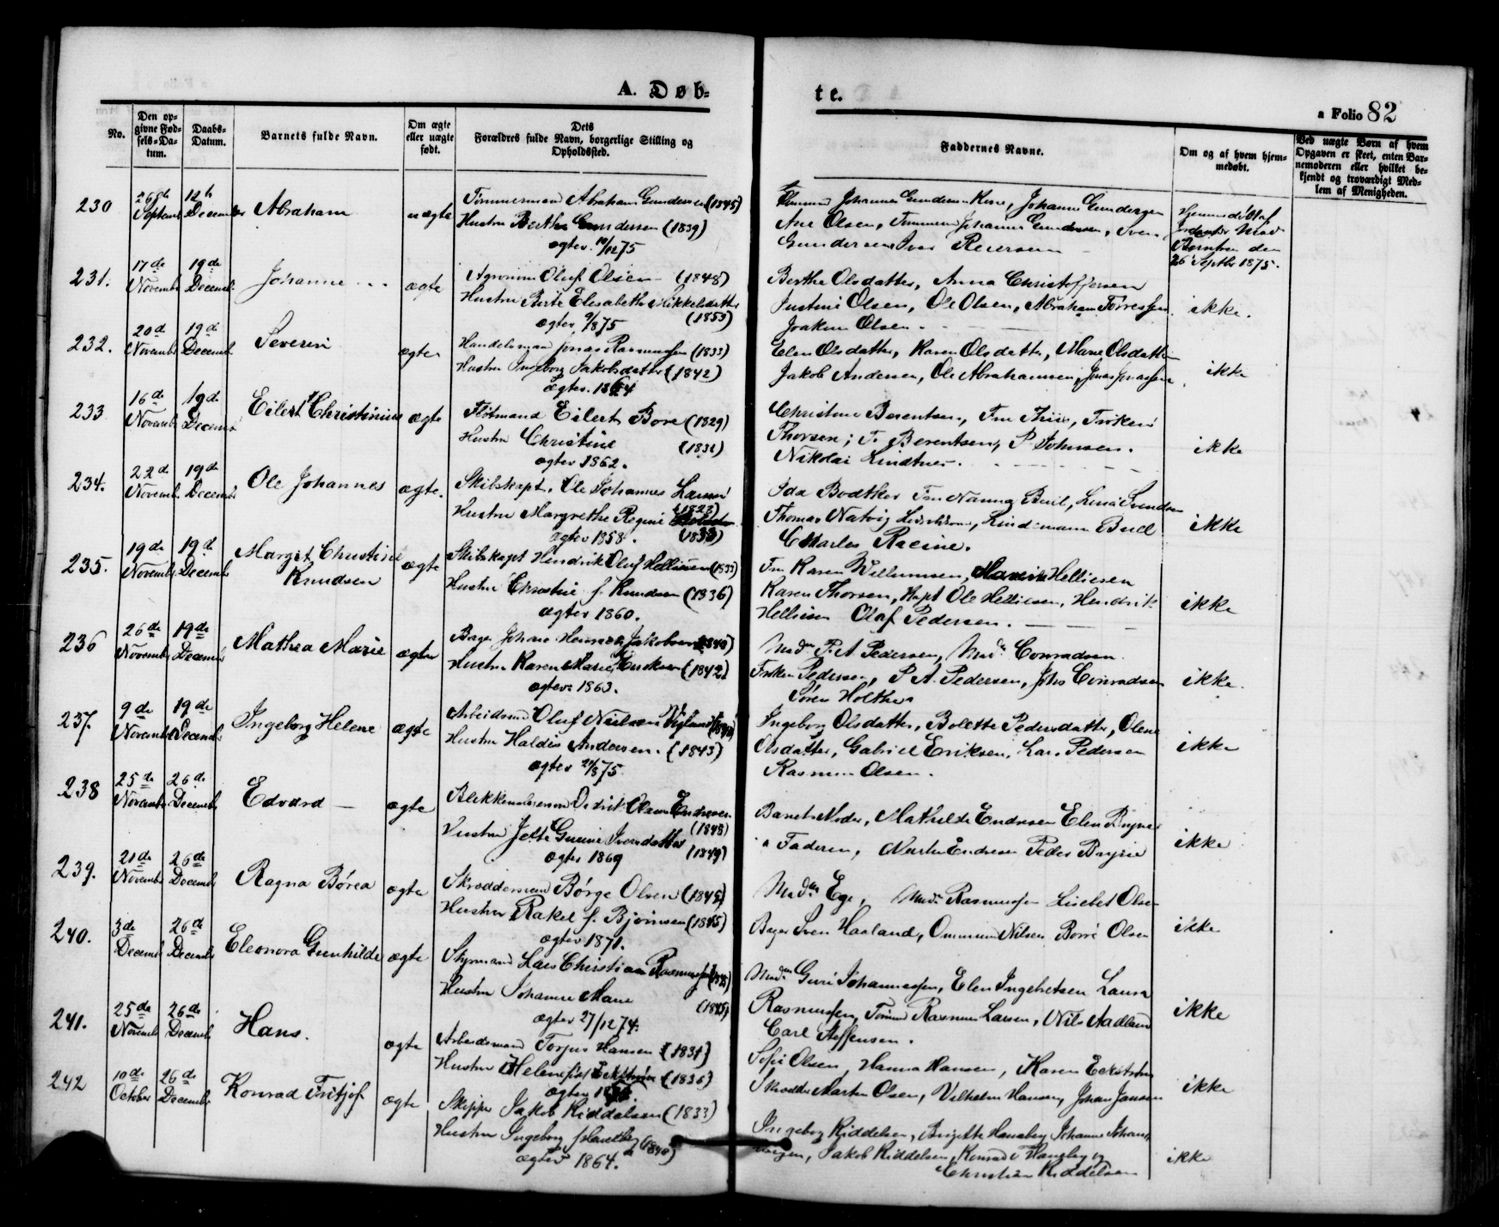 A. Døb-
te.
a Folio 82
No.
Den op-
givne Fød-
sels-Da-
tum.
Daabs-
Datum.
Barnets fulde Navn.
Om ægte
eller uægte
født.
Dets
Forældres fulde Navn, borgerlige Stilling og
Opholdssted.
Faddernes Navne.
Om og af hvem hjem-
medøbt.
Ved uægte Børn af hvem
Opgaven er skeet, enten Bar-
nemoderen eller hvilket be-
kjendt og troværdigt Med-
lem af Menigheden.
230
26de 12te
Septemb Decemb Abraham uægte
Tømmermand Abraham Gundersen (1845)
Hustru Berthe Gundersen (1839)
ægtev. 12/1275
Johannes Gundersen Johanne Gundersen
Ane Olsen, Tømmerm Johannes Gundersen, Sven
Gundersen Ivar Reiersen
Hjemmedøbt af
Bernsen den
26 Septbr 1875.
231.
17de 19de
Novemb Decemb Johanne ægte
Agronom Oluf Olsen (1848)
Hustru Berte Elisabeth Mikkelsdatter
(1853)
ægtev 9/875
Berthe Olsdatter, Anna Christoffersen
Justine Olsen, Ole Olsen, Abraham Torressen
Joakim Olsen.
ikke.
232.
20d 19d
Novemb Decemb Severin ægte
Handelsmand Jonas Rasmussen (1833)
Hustru Ingeborg Jakobsdatter (1842)
Ægtev. 1864
Elen Olsdatter, Karen Olsdatter, Marie Olsdatter
Jakob Andersen, Ole Abrahamsen, Jonas Jonassen
ikke
233
16de 19d
Novemb Decemb Eilert Christinius ægte
Fløtmand Eilert Bore (1829)
Hustru Christine (1831)
ægtev 1862.
Christine Berentsen, Frk Thiis, Frøken
Thorsen; Fr Berentsen, P. Johnsen.
Nikolai Lindtner.
ikke
234.
22d 19d
Novemb Decemb Ole Johannes ægte.
Skibskapt. Ole Johannes Larsen
(1823)
Hustru Margrethe Regine
ægtev 1858. (1833)
Ida Bødtker Frk Nanna Buil, Lina Svendsen
Thomas Natvig Lindemann Buil
Charles Racine.
ikke
235.
19de 19d
Novemb Decemb Margit Christine
Knudsen ægte
Skibskapt Hendrik Oluf Helliesen (1833)
Hustru Christine f. Knudsen (1836)
ægtev 1860.
Fru Karen Willumsen, Helliesen
Karen Thorsen, Kapt Ole Helliesen, Hendrik
Helliesen Olaf Pedersen.
ikke
236
26de 19de
Novemb Decemb Mathea Marie ægte
Bager Johan Henrik Jakobsen (1840)
Hustru Karen Marie Eriksen (1842)
ægtev. 1863.
Mdm P. A Pedersen, Md. Conradsen
Frøken Pedersen, P. A. Pedersen, Johs Conradsen
Søren Holthe
ikke.
237.
9de 19de
Novemb Decemb Ingeborg Helene ægte
Arbeidsmd Oluf Nielsen Vigland
Hustru Haldis Andersen. (1843)
ægtev 20/875.
Ingeborg Olsdatter, Bolette Pedersdatter, Olene
Olsdatter, Gabriel Eriksen, Lars Pedersen
Rasmus Olsen.
ikke
238
25de 26de
Novemb Decemb Edvard ægte
Blikkenslagersvend Didrik Olsen Endresen
(1848)
Hustru Jette Gurine Iversdatter (1849)
ægtev 1869
Barnets Moder, Mathilde Endresen Elen Bryne
Faderen, Morten Endresen Peder Bryne
ikke
239.
21de 26de
Novemb Decemb Ragna Børea ægte
Skræddersvend Børge Olsen (1845)
Hustru Rakel f. Bjørnsen (1845)
ægtev 1871.
Mdm Ege, Mdm Rasmussen Lisebet Olsen
Bager Sven Haaland, Ommund Nilsen Børre Olsen
ikke
240.
3de 26de
Decemb Decemb Eleonora Gunhilde ægte
Styrmand Lars Christian Rasmussen
Hustru Johanne Marie (1845)
ægtev 27/1274.
Mdm Guri Johannessen, Elen Ingebretsen Laura
Rasmussen, Tømmd Rasmus Larsen, Nils Aadland
Carl Steffensen.
ikke
241.
25de 26de
Novemb Decemb Hans. ægte
Arbeidsmand Torjus Hansen (1831)
Hustru Helene f. Eckstrøm (1836)
ægtev
Sofie Olsen, Hanna Hansen, Karen Eckstrøm
Skrædder Morten Olsen, Vilhelm Hansen, Johan Jansen
ikke
242
10de 26de
October Decemb Konrad Fritjof ægte
Skipper Jakob Riddelsen (1833)
Hustru Ingeborg f. Hansberg (1840)
ægtev 1864.
Ingeborg Riddelsen, Birgitte Hansberg Johanne Johans
Jakob Riddelsen, Konrad Hansberg og
Christian Riddelsen
ikke